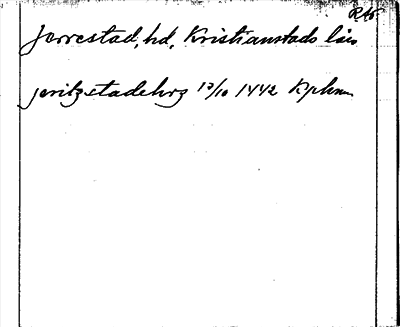 RA
Jerrestad, hd, Kristianstads län
jeritzstadehrz 13/10 1442 Kphmn